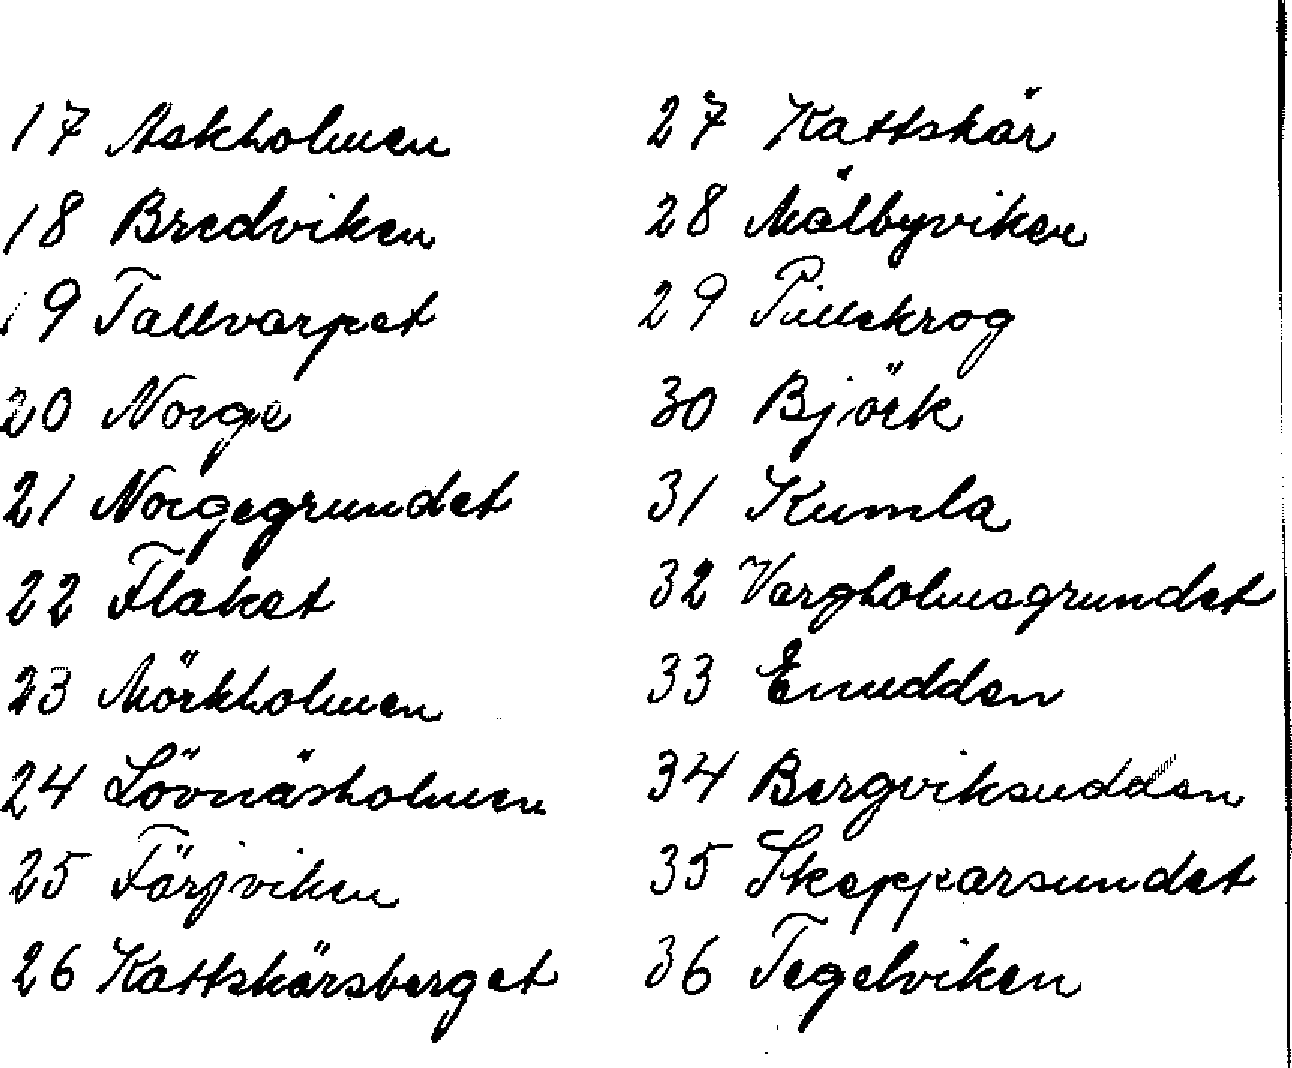 17 Askholmen
18 Bredviken
19 Tallvarpet
20 Norge
21 Norgegrundet
22 Flaket
23 Mörkholmen
24 Lövnäsholmen
25 Färjviken
26 Kattskärsberget
27 Kattskär
28 Målbyviken
29 Pillekrog
30 Björk
31 Kumla
32 Vargholmsgrundet
33 Enudden
34 Bergviksudden
35 Skepparsundet
36 Tegelviken